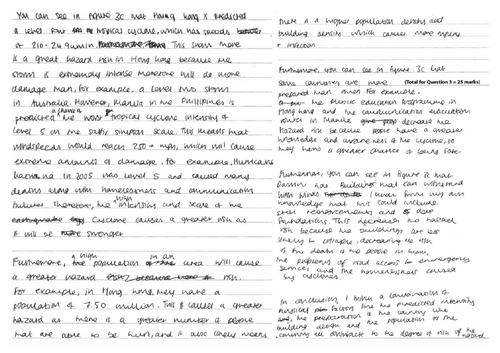 You can see in figure 3c that Hong Kong is predicted
a level four tropical cyclone, which has speeds
of 210-249 km/h. This storm more
is a great hazard risk in Hong Kong because the
storm is extremely intense therefore will do more
damage than, for example, a level two storm
in Australia. However, Manila in the Philippines is
predicted a chance of tropical cyclone intensity of
level 5 on the saffir simpson scale. This means that
windspeeds would reach 250+ mph, which will cause
extreme amounts of damage. For example, Hurricane
Katrina in 2005 was level 5 and caused many
deaths along with homelessness and communication
failures. Therefore, the high intensity and scale of the
cyclone causes a greater risk as
it will be stronger
Furthermore, a high population in an area will cause
a greater hazard risk.
For example, in Hong Kong, they have a
population of 7.50 million. This causes a greater
hazard as there is a greater number of people
that are able to be hurt, and is also likely means
there is a higher population density and
building density which causes more injury
+ infection
Furthermore, you can see in figure 3c that
some countries are more
(Total for Question 3 = 25 marks)
prepared than others. For example,
the public education programme in
Hong Kong and the communication evacuation
routes in Manila decrease the
hazard risk because people have a greater
knowledge and awareness of the cyclone, so
may have a greater chance of being safe.
Furthermore, you can see in figure 3c that
Darwin has buildings that can withstand
high winds. I know from my own
knowledge that this could include
steel reinforcements and deep
foundations. This decreases the hazard
risk because the buildings are less
likely to collapse, decreasing the risk
of the death of the people in them,
the problems of road access to emergency
services and the homelessness caused
by cyclones
In conclusion, I think a combination of
physical factors like the predicted intensity
and, the preparation of the country like
building design and the population of the
country all contribute to the degree of risk of the hazard